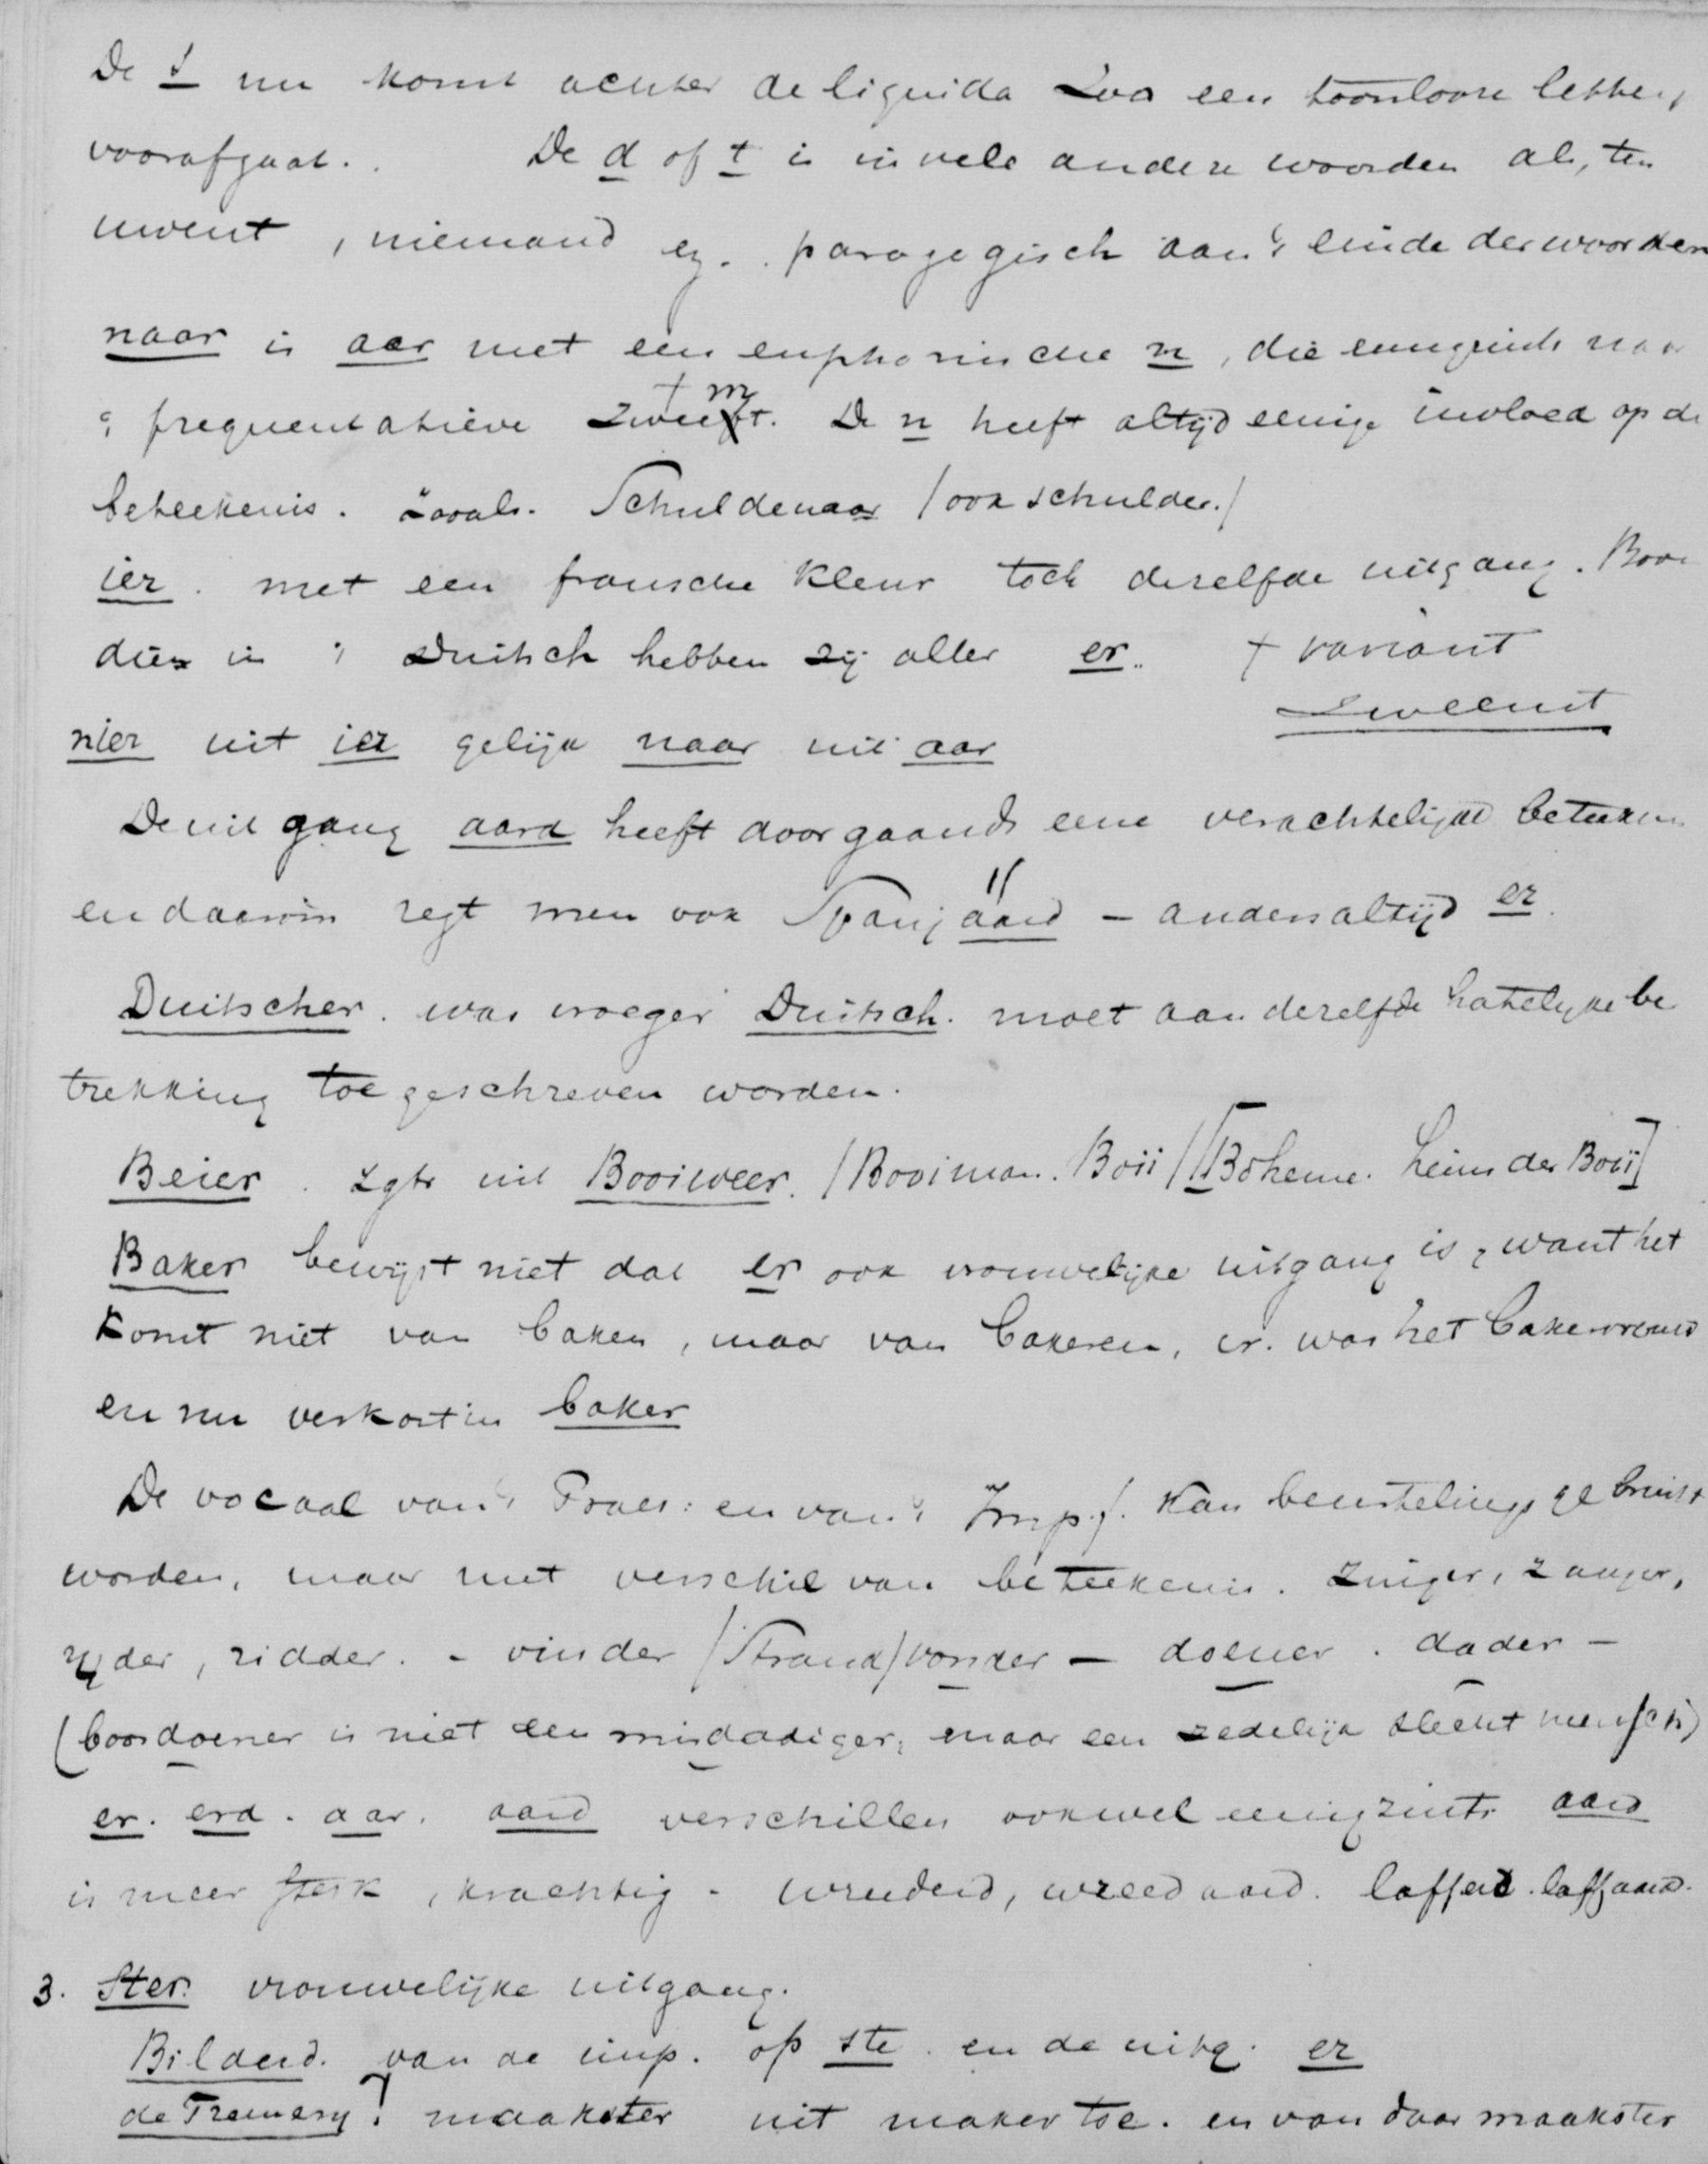 De d nu komt achter de liquida zoo een toonlooze letter
voorafgaat. De d of t is in vele andere woorden als, ten
uwent, niemand ez. paragogisch aan 't einde der woorden
naar is aar met een euphonische n, die eenigzints naar
't frequentatieve zweemt. De n heeft altijd eenige invloed op de
beteekenis. zooals. Schuldenaar (ook schulder.)
ier. met een fransche kleur toch dezelfde uitgang. Boven
dien in 't Duitsch hebben zij alle er. + variant
zweemt
nier uit ier gelijk naar uit aar
De uitgang aard heeft doorgaands eene verachtelijke beteeken
en daarom zegt men ook Spanjaard - anders altijd er.
Duitscher. was vroeger Duitsch. moet aan dezelfde hatelijke be
trekking toegeschreven worden.
Beier. zgtr uit Booiweer. (Booiman. Boii) [Boheme. heim der Boii]
Baker bewijst niet dat er ook vrouwelijke uitgang is, want het
komt niet van baken, maar van bakeren, er. was het bakervrouw
en nu verkort in baker
De vocaal van 't Praes: en van 't Impf. kan beurtelings gebruikt
worden, maar met verschil van beteekenis. Zinger, zanger,
rijder, ridder. - vinder (Strand)vonder - doener. dader -
(boosdoener is niet een misdadiger, maar een zedelijk slecht mensch)
er. erd. aar. aard verschillen ook wel eenigzints aard
is meer sterk, krachtig - wreederd, wreedaard. laffert. laffaard.
3. Ster. vrouwelijke uitgang.
Bilderd. van de imp. op ste. en de uitg. er
de Fremery! maakster uit maker toe. en van daar maakster